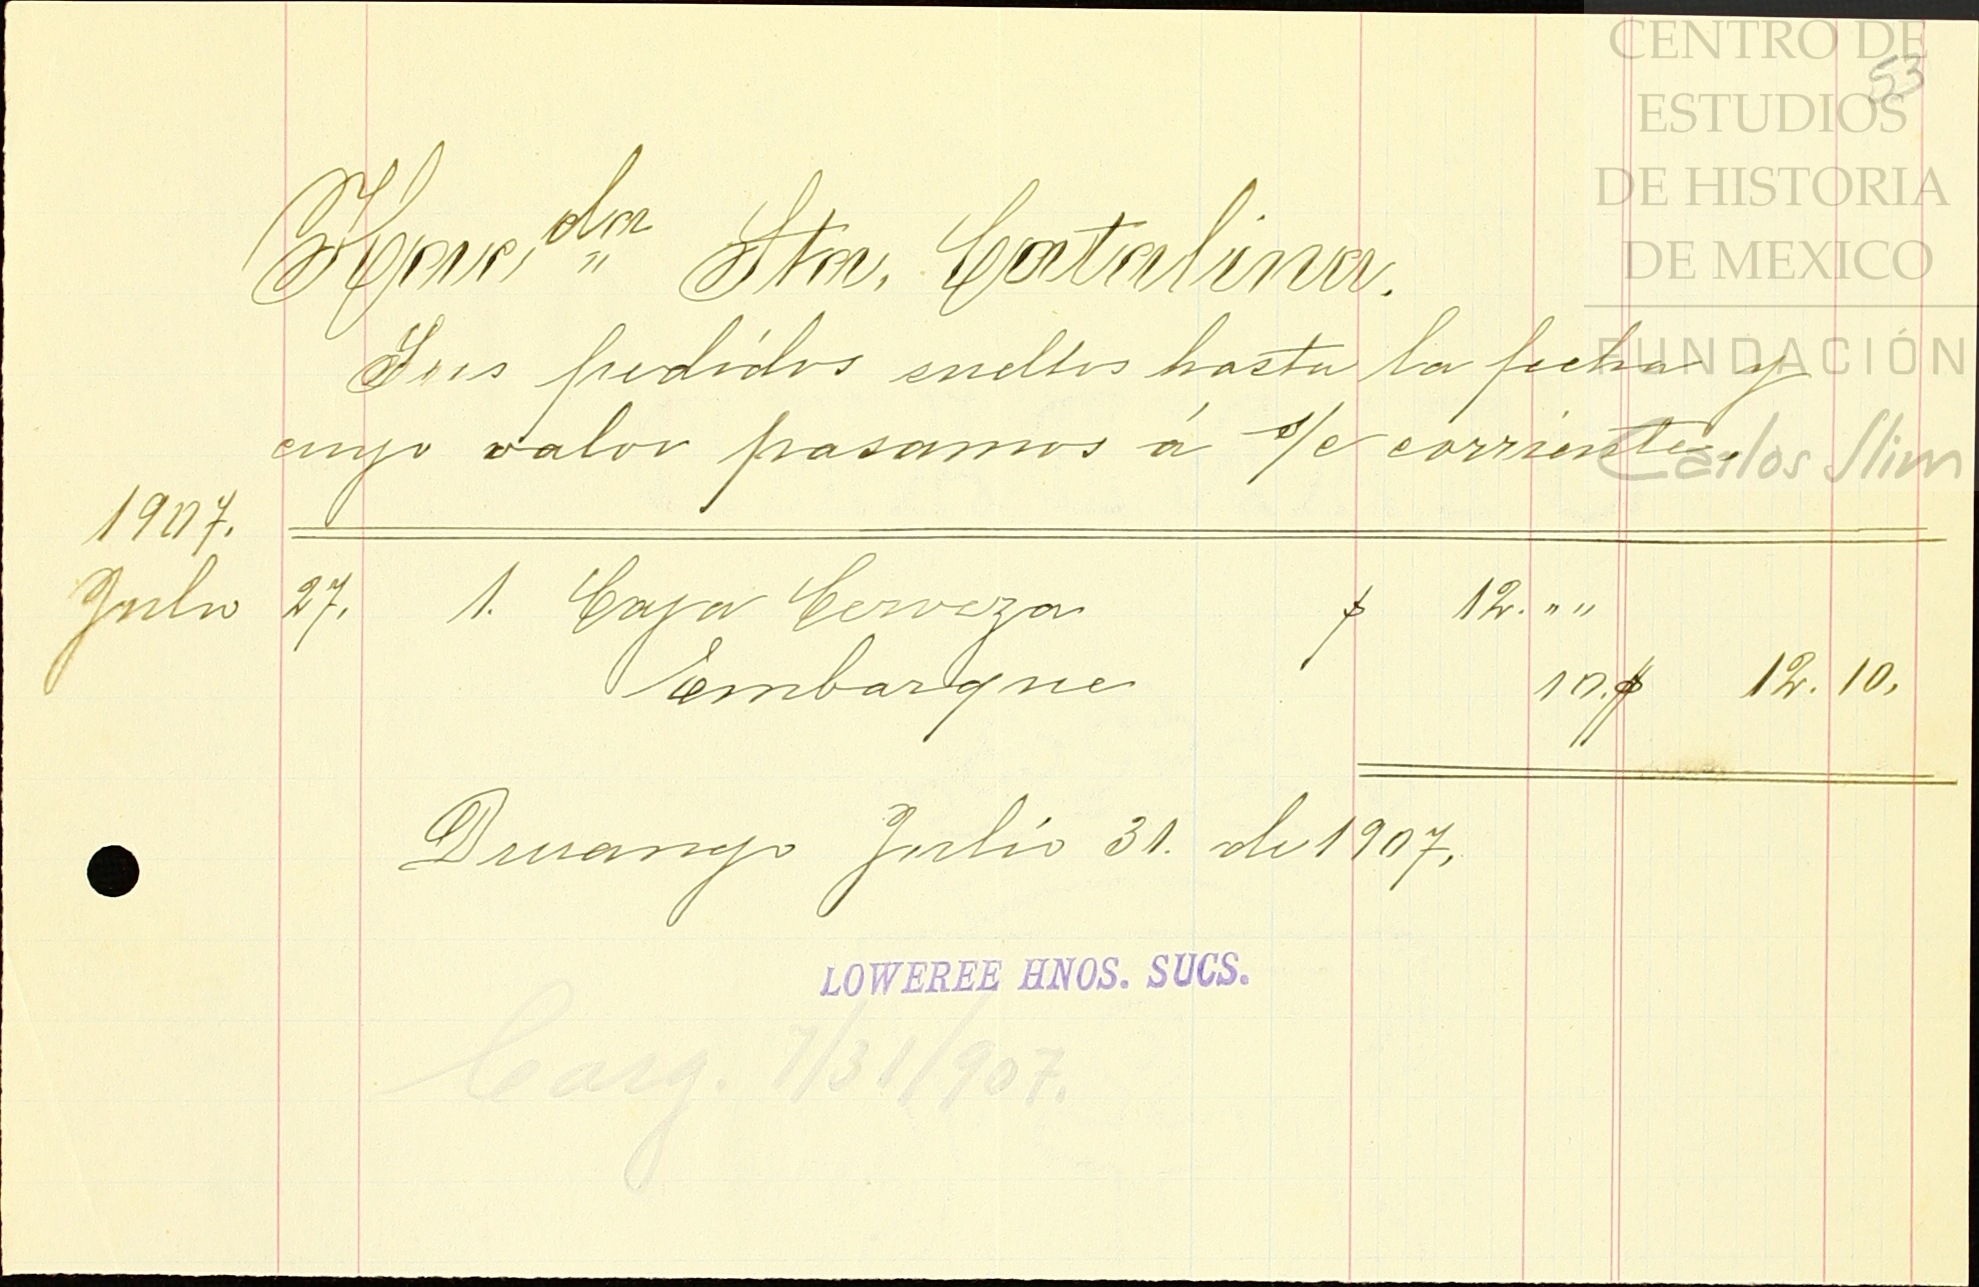 CENTRO DE
ESTUDIOS
DE HISTORIA
DE MEXICO
FUNDACIÓN
Carlos Slim
53
Hac.da Sta. Catalina.
Sus pedidos sueltos hasta la fecha y
cuyo valor pasamos á s/c corriente.
1907.
Julio 27. 1. Caja Cerveza $ 12. " "
Embarque 10. $ 12. 10.
Durango Julio 31. de 1907.
LOWEREE HNOS. SUCS.
Carg. 7/31/907.